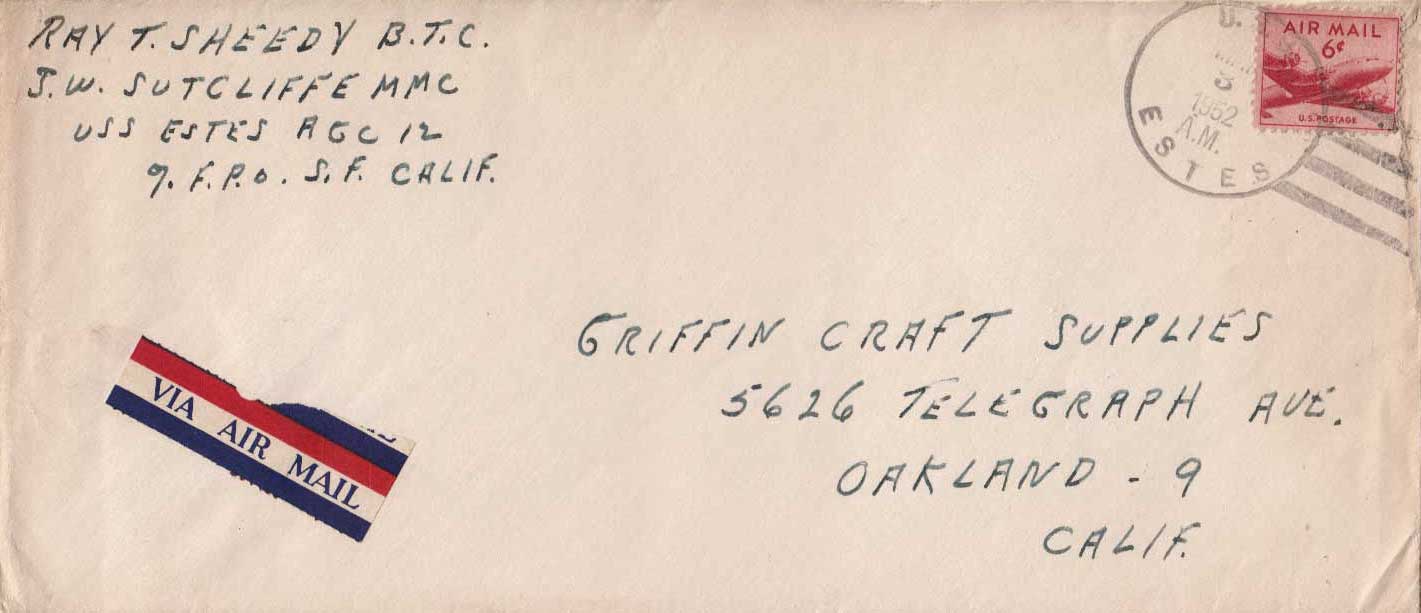 RAY T. SHEEDY B.T.C.
J.W. SUTCLIFFE MMC
USS ESTES AGC 12
%. F.P.O. S.F. CALIF.
U.
3
1952
A.M.
ESTES
AIR MAIL
6¢
U.S. POSTAGE
GRIFFIN CRAFT SUPPLIES
5626 TELEGRAPH AVE.
OAKLAND - 9
CALIF.
VIA AIR MAIL